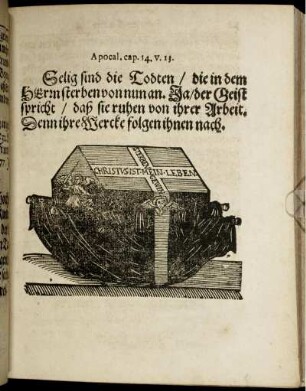 Apocal. cap. 14. v. 13.
Selig sind die Todten / die in dem
HErrn sterben von nun an. Ja / der Geist
spricht / daß sie ruhen von ihrer Arbeit.
Denn ihre Wercke folgen ihnen nach.
CHRISTVS IST MEIN LEBEN